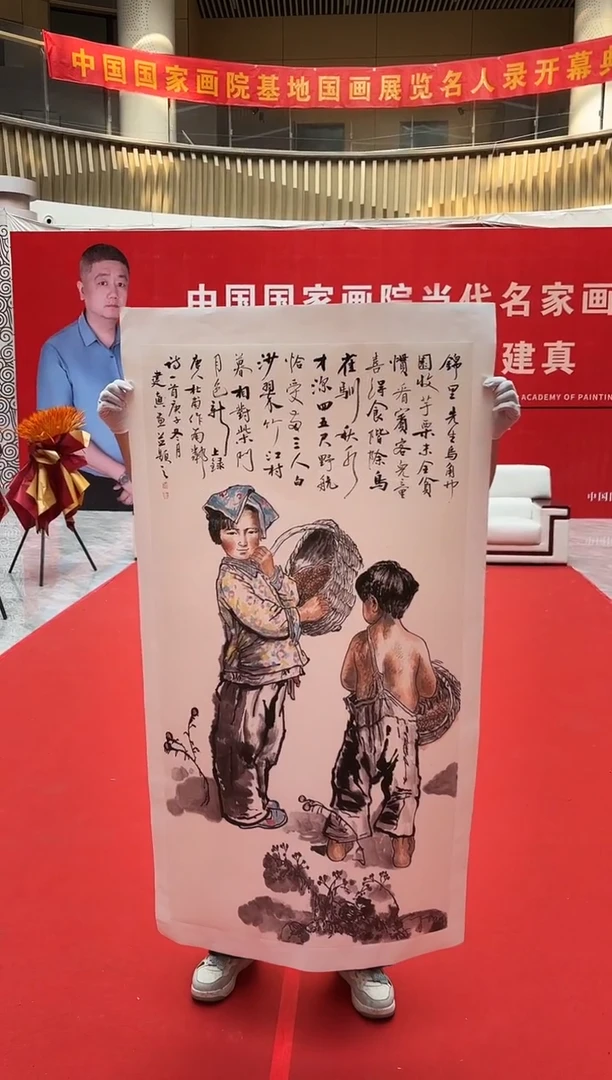 中国国家画院基地国画展览名人录开幕
中国国家画院当代名家画
建真
ACADEMY OF PAINTIN
中国国
錦里先生烏角巾
園收芋栗未全貧
慣看賓客兒童
喜得食階除鳥
雀馴秋水
才深四五尺野航
恰受兩三人白
沙翠竹江村
暮相對柴門
月色新 上録
唐人杜甫作南鄰
詩一首庚子冬月
建真画并题之